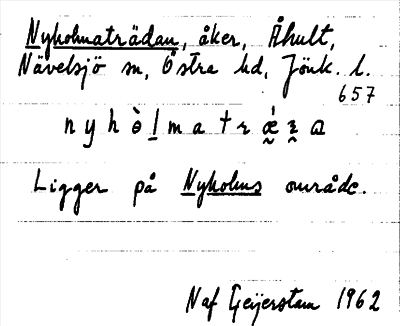 Nyholmaträdan, åker, Åhult,
Nävelsjö sn, Östra hd, Jönk. l.
657
nyhòlmatrǽ̰z̯ɷ
Ligger på Nyholms område.
Naf Geijerstam 1962